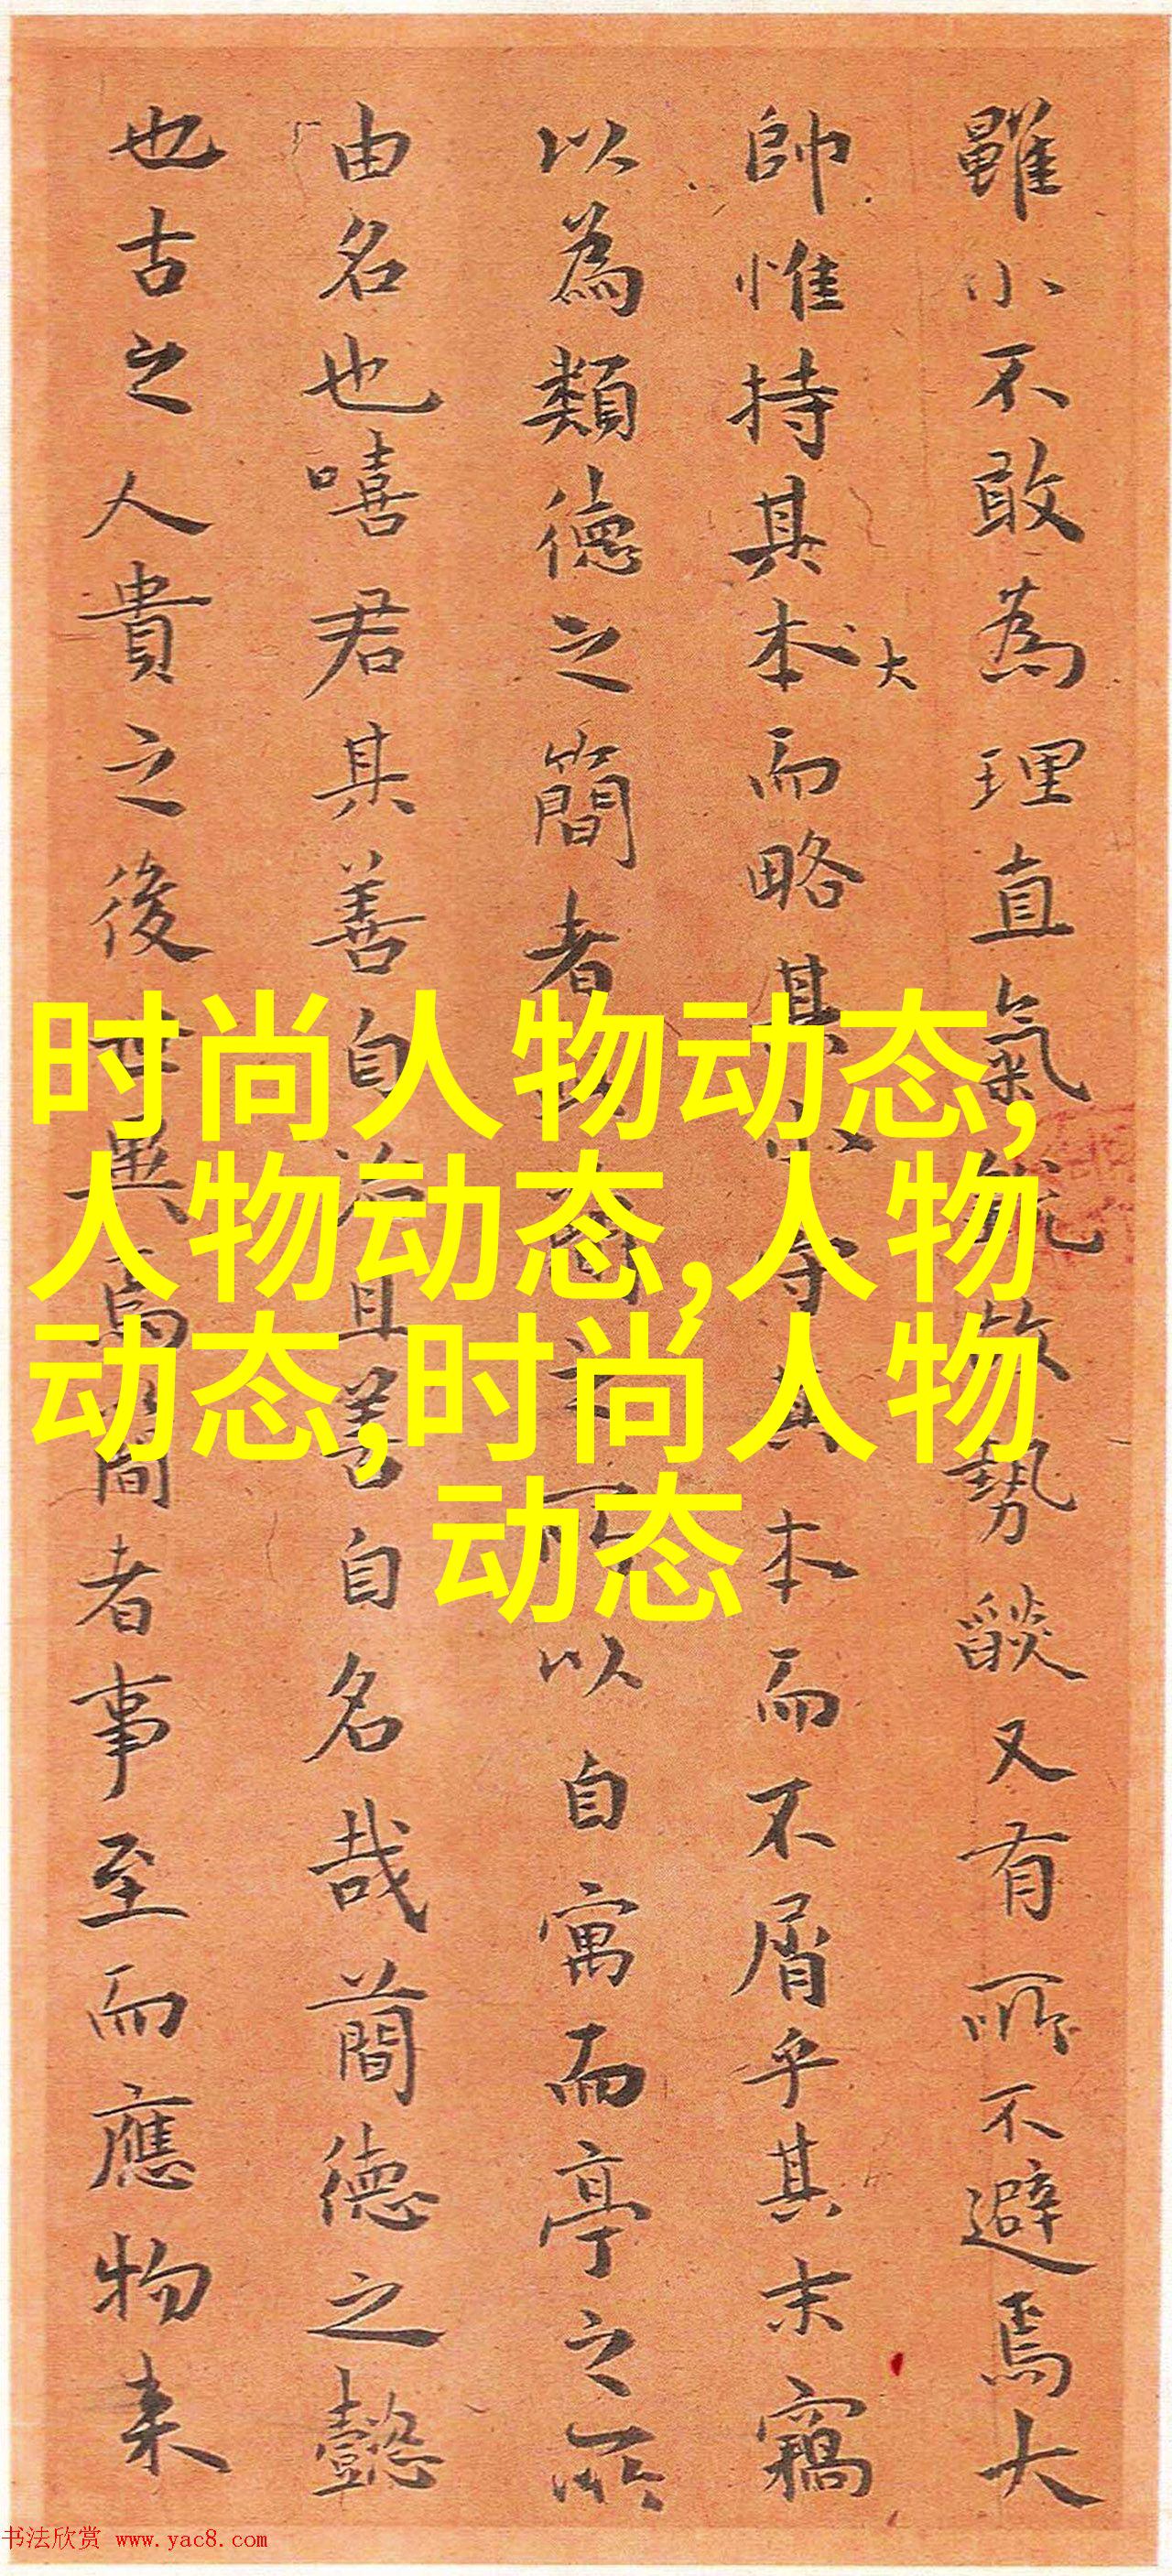 雖小不敢為理直氣
勢燄又有所不避焉大
帥惟持其本大而略其
守其本而不屑乎其末竊
以為類德之簡者
以自寓而亭之所
由名也嘻君其善自
且善自名哉簡德之懿
也古之人貴之後世
異焉簡者事至而應物來
时尚人物动态,
人物动态,人物
动态,时尚人物
动态
书法欣赏 www.yac8.com